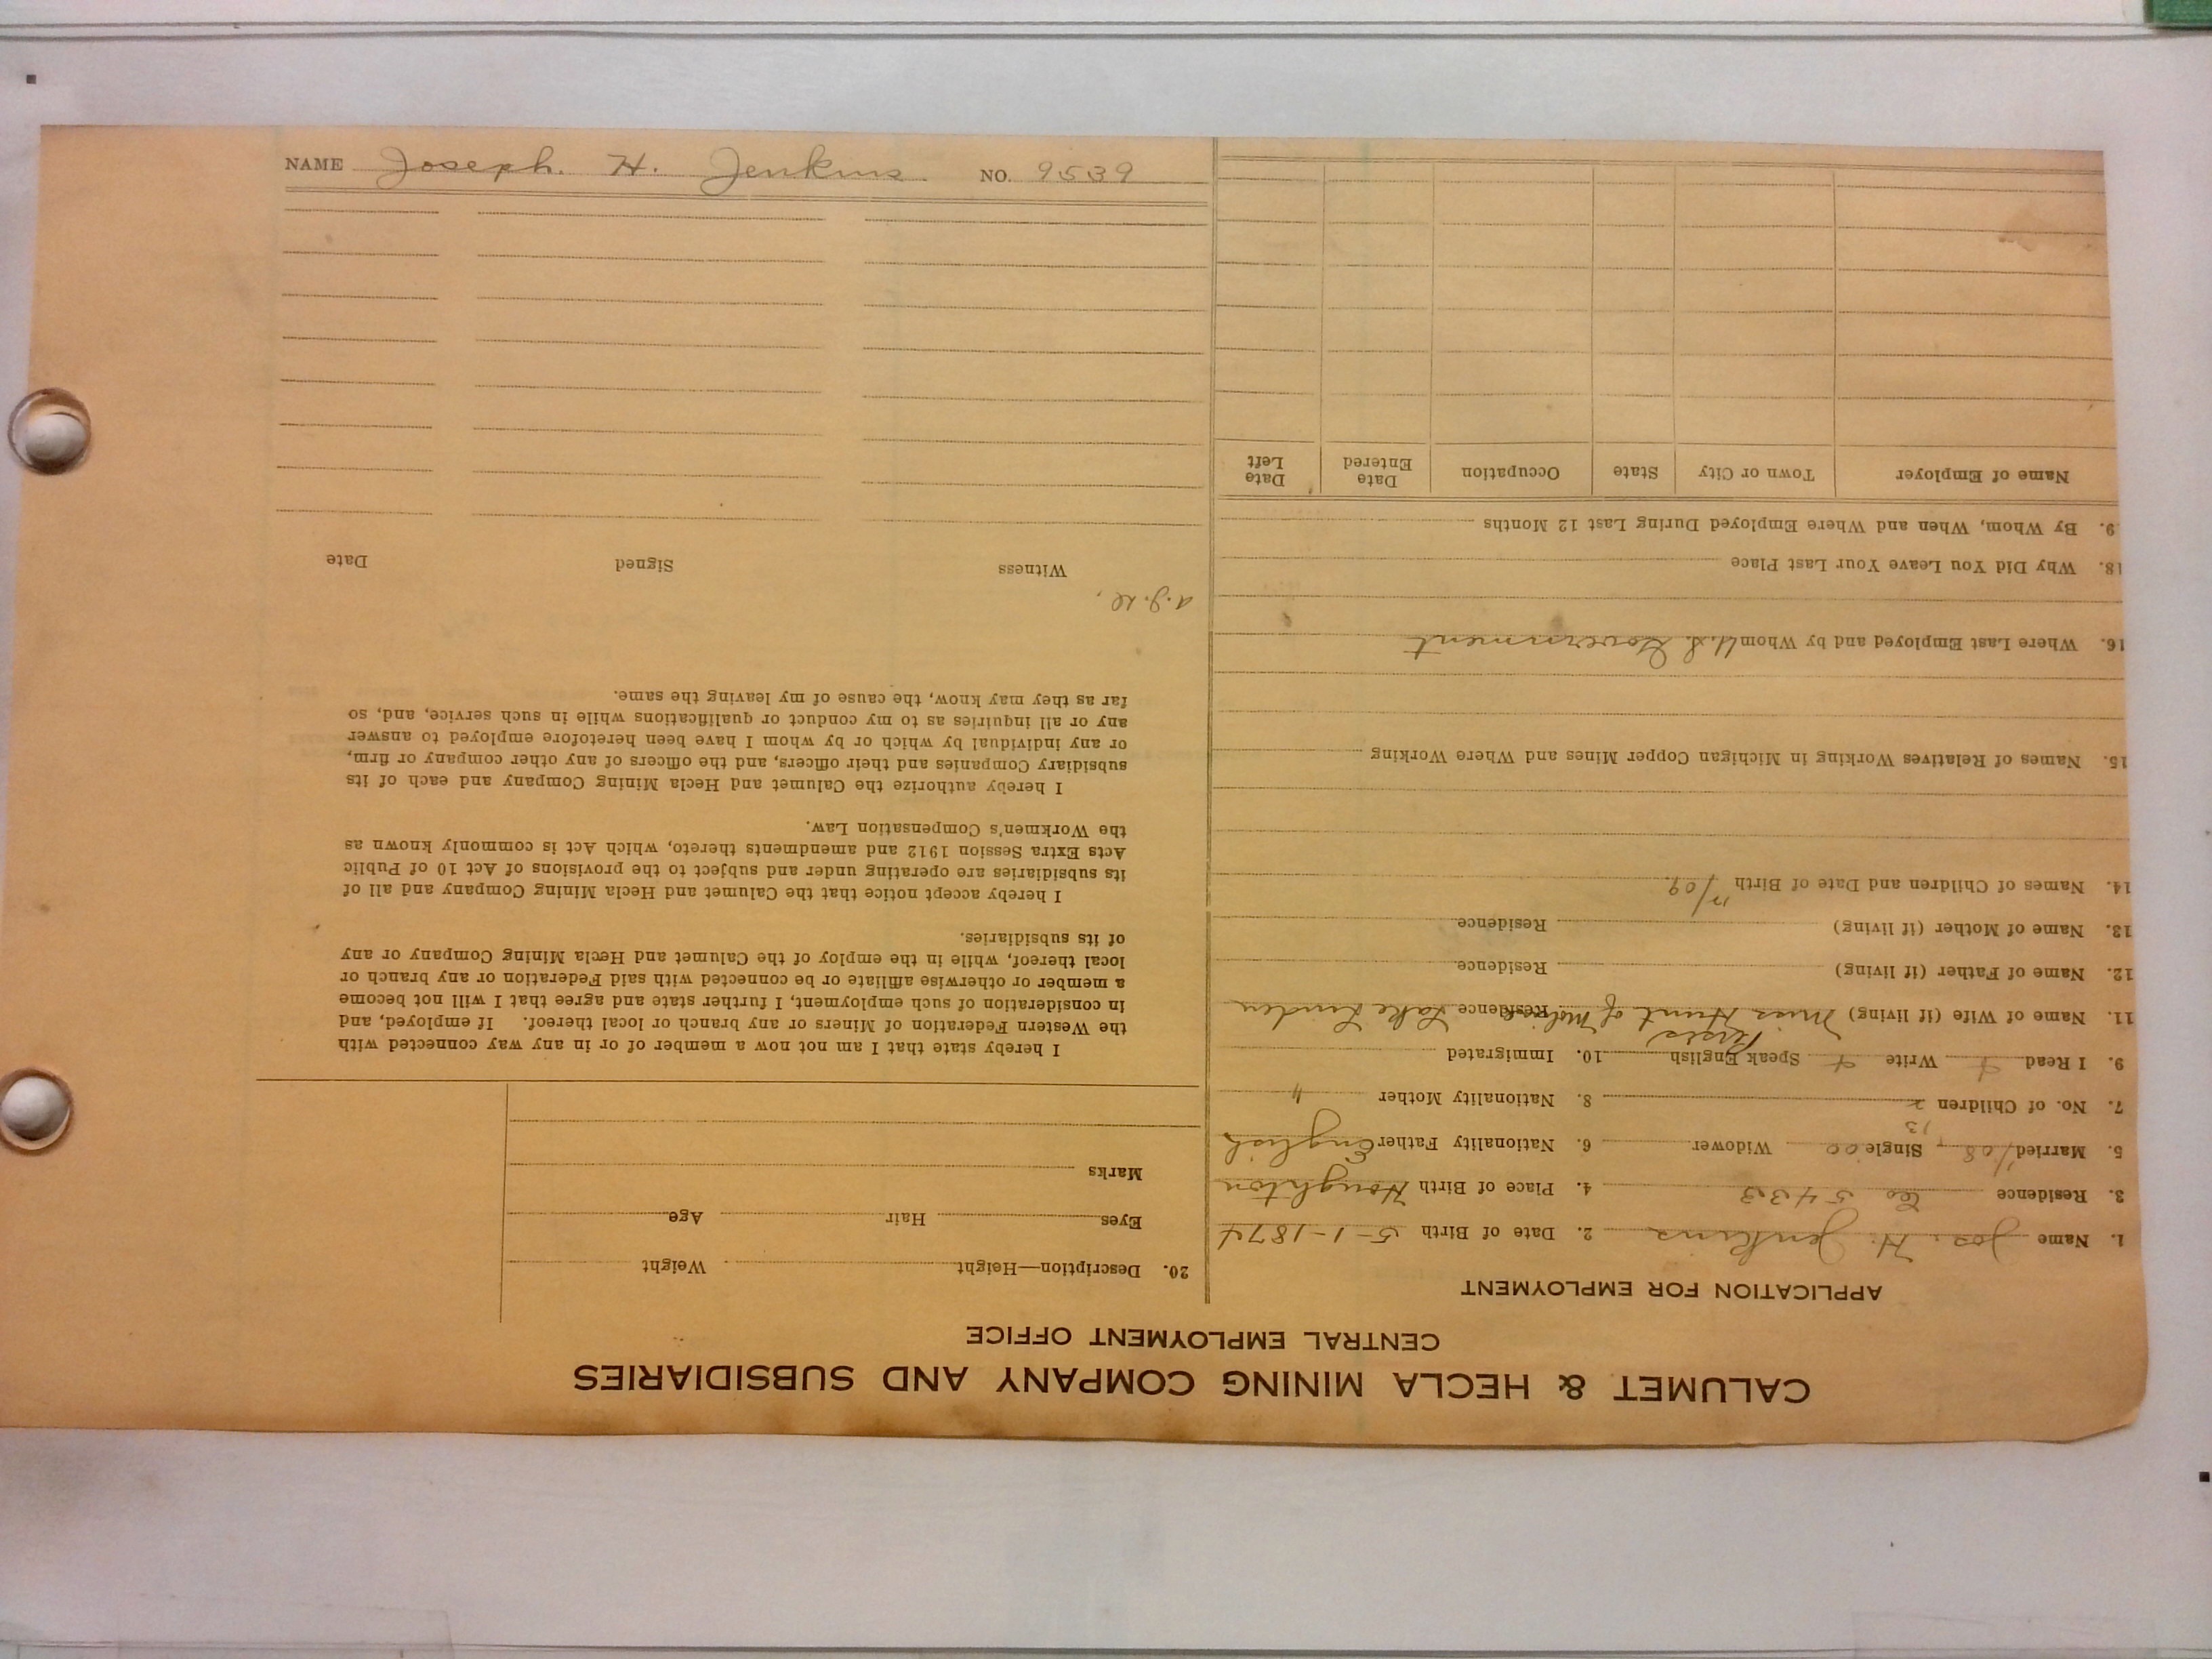 CALUMET & HECLA MINING COMPANY AND SUBSIDIARIES
CENTRAL EMPLOYMENT OFFICE
APPLICATION FOR EMPLOYMENT
1. Name Jos. H. Jenkins 2. Date of Birth 5-1-1874
3. Residence Co 5433 4. Place of Birth Houghton
5. Married /08 Single 00 Widower 6. Nationality Father English
13
7. No. of Children 2 8. Nationality Mother "
9. I Read Write Speak English 10. Immigrated
11. Name of Wife (if living) Miss Hunt of Residence Lake Linden
12. Name of Father (if living) Residence
13. Name of Mother (if living) Residence
14. Names of Children and Date of Birth /09.
15. Names of Relatives Working in Michigan Copper Mines and Where Working
16. Where Last Employed and by Whom U.S. Government
18. Why Did You Leave Your Last Place
9. By Whom, When and Where Employed During Last 12 Months
Name of Employer Town or City State Occupation Date Entered Date Left
20. Description—Height Weight
Eyes Hair Age
Marks
I hereby state that I am not now a member of or in any way connected with
the Western Federation of Miners or any branch or local thereof. If employed, and
in consideration of such employment, I further state and agree that I will not become
a member or otherwise affiliate or be connected with said Federation or any branch or
local thereof, while in the employ of the Calumet and Hecla Mining Company or any
of its subsidiaries.
I hereby accept notice that the Calumet and Hecla Mining Company and all of
its subsidiaries are operating under and subject to the provisions of Act 10 of Public
Acts Extra Session 1912 and amendments thereto, which Act is commonly known as
the Workmen's Compensation Law.
I hereby authorize the Calumet and Hecla Mining Company and each of its
subsidiary Companies and their officers, and the officers of any other company or firm,
or any individual by which or by whom I have been heretofore employed to answer
any or all inquiries as to my conduct or qualifications while in such service, and, so
far as they may know, the cause of my leaving the same.
Witness Signed Date
NAME Joseph. H. Jenkins. NO. 9539